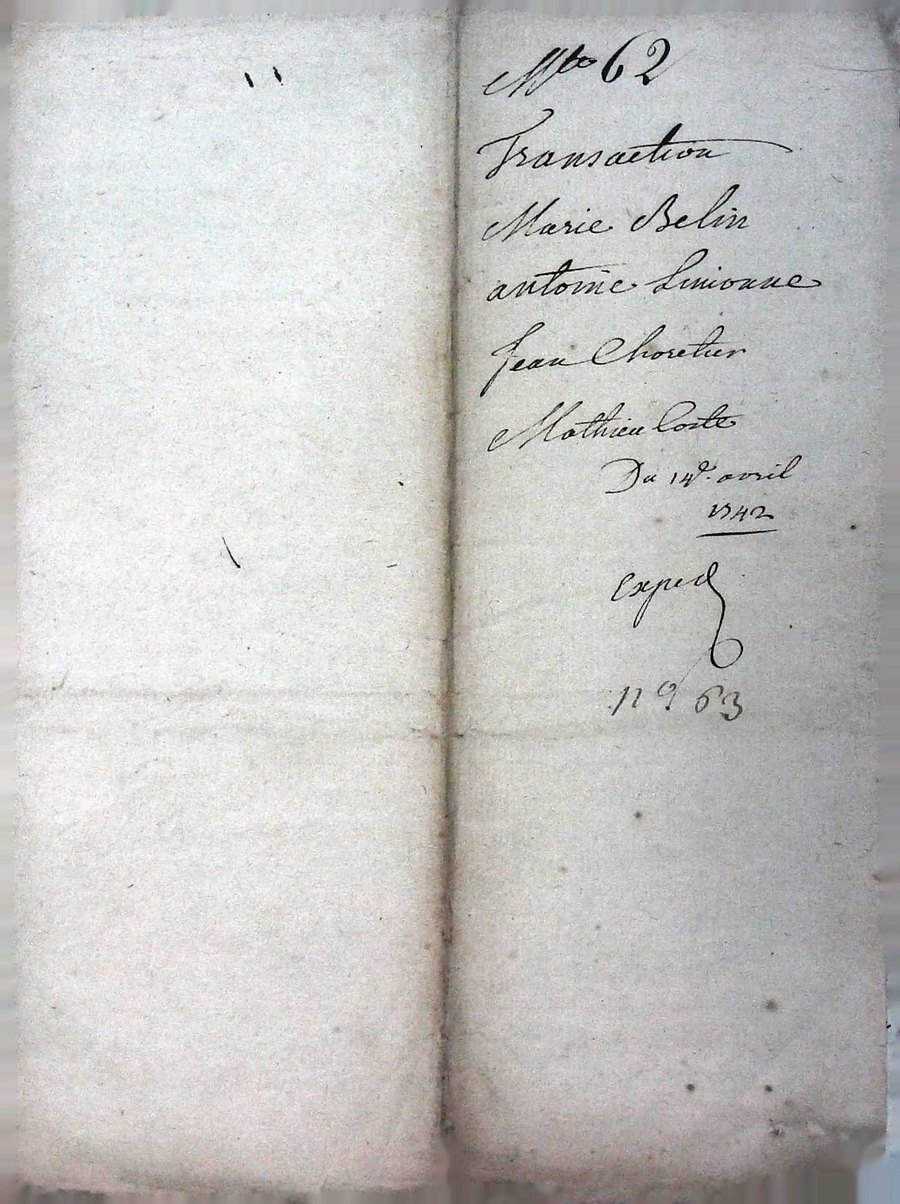 62
Transaction
Marie Belin
antoine Simonne
Jean Choretier
Mathieu Coste
Du 14e. avril
1742
exped
no 63